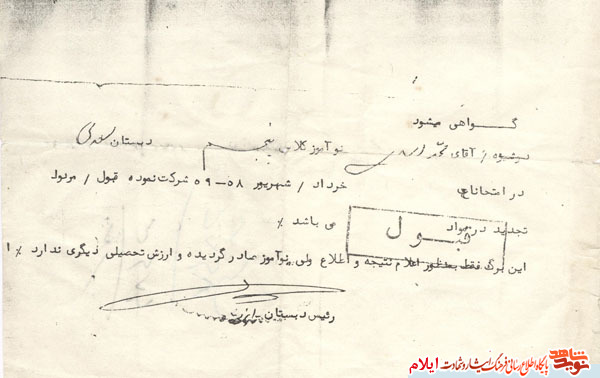 گواهی میشود
دوشیزه / آقای محمد نوآموز کلاس پنجم دبستان سعدی
در امتحانات خرداد / شهریور ۵۸-۵۹ شرکت نموده قبول / مردود
تجدید در مواد می باشد ٪
قبول
این برگ فقط بمنظور اعلام نتیجه و اطلاع ولی نوآموز صادر گردیده و ارزش تحصیلی دیگری ندارد ٪ ا
رئیس دبستان
نوید شاهد
پایگاه اطلاع رسانی فرهنگ ایثار و شهادت ایلام